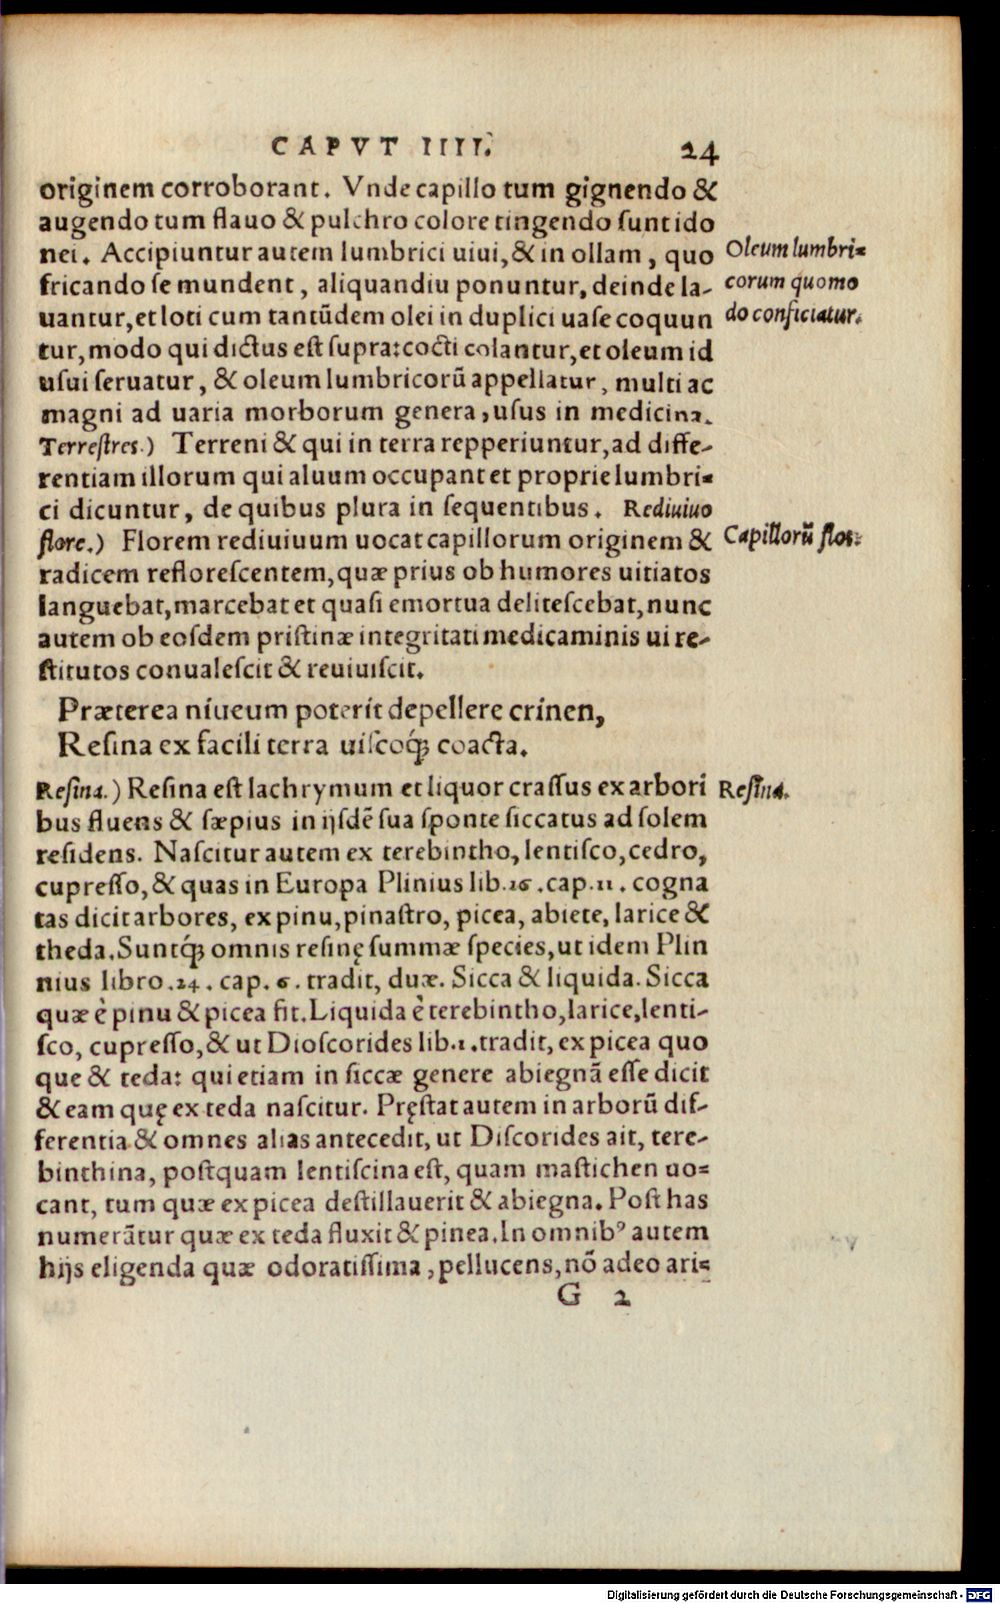 CAPVT IIII. 24
originem corroborant. Vnde capillo tum gignendo &
augendo tum flauo & pulchro colore tingendo ſunt ido
nei. Accipiuntur autem lumbrici uiui, & in ollam, quo
Oleum lumbri=
fricando ſe mundent, aliquandiu ponuntur, deinde la-
corum quomo
uantur, et loti cum tantūdem olei in duplici uaſe coquun
do conficiatur.
tur, modo qui dictus eſt ſupra: cocti colantur, et oleum id
uſui ſeruatur, & oleum lumbricorū appellatur, multi ac
magni ad uaria morborum genera, uſus in medicina.
Terreſtres.) Terreni & qui in terra repperiuntur, ad diffe-
rentiam illorum qui aluum occupant et proprie lumbri=
ci dicuntur, de quibus plura in ſequentibus. Rediuiuo
flore.) Florem rediuiuum uocat capillorum originem &
Capillorū flos:
radicem refloreſcentem, quæ prius ob humores uitiatos
languebat, marcebat et quaſi emortua deliteſcebat, nunc
autem ob eoſdem priſtinæ integritati medicaminis ui re-
ſtitutos conualeſcit & reuiuiſcit.
Præterea niueum poterit depellere crinen,
Reſina ex facili terra uiſcoq́ꝫ coacta.
Reſina.) Reſina eſt lachrymum et liquor craſſus ex arbori
Reſina.
bus fluens & ſæpius in ijſdē ſua ſponte ſiccatus ad ſolem
reſidens. Naſcitur autem ex terebintho, lentiſco, cedro,
cupreſſo, & quas in Europa Plinius lib.16.cap.11. cogna
tas dicit arbores, ex pinu, pinaſtro, picea, abiete, larice &
theda. Suntq́ꝫ omnis reſinę ſummæ ſpecies, ut idem Plin
nius libro.24. cap. 6. tradit, duæ. Sicca & liquida. Sicca
quæ è pinu & picea fit. Liquida è terebintho, larice, lenti-
ſco, cupreſſo, & ut Dioſcorides lib.1.tradit, ex picea quo
que & teda: qui etiam in ſiccæ genere abiegnā eſſe dicit
& eam quę ex teda naſcitur. Pręſtat autem in arborū dif-
ferentia & omnes alias antecedit, ut Diſcorides ait, tere-
binthina, poſtquam lentiſcina eſt, quam maſtichen uo=
cant, tum quæ ex picea deſtillauerit & abiegna. Poſt has
numerātur quæ ex teda fluxit & pinea. In omnibꝰ autem
hijs eligenda quæ odoratiſſima, pellucens, nō adeo ari=
G 2
Digitalisierung gefördert durch die Deutsche Forschungsgemeinschaft - DFG